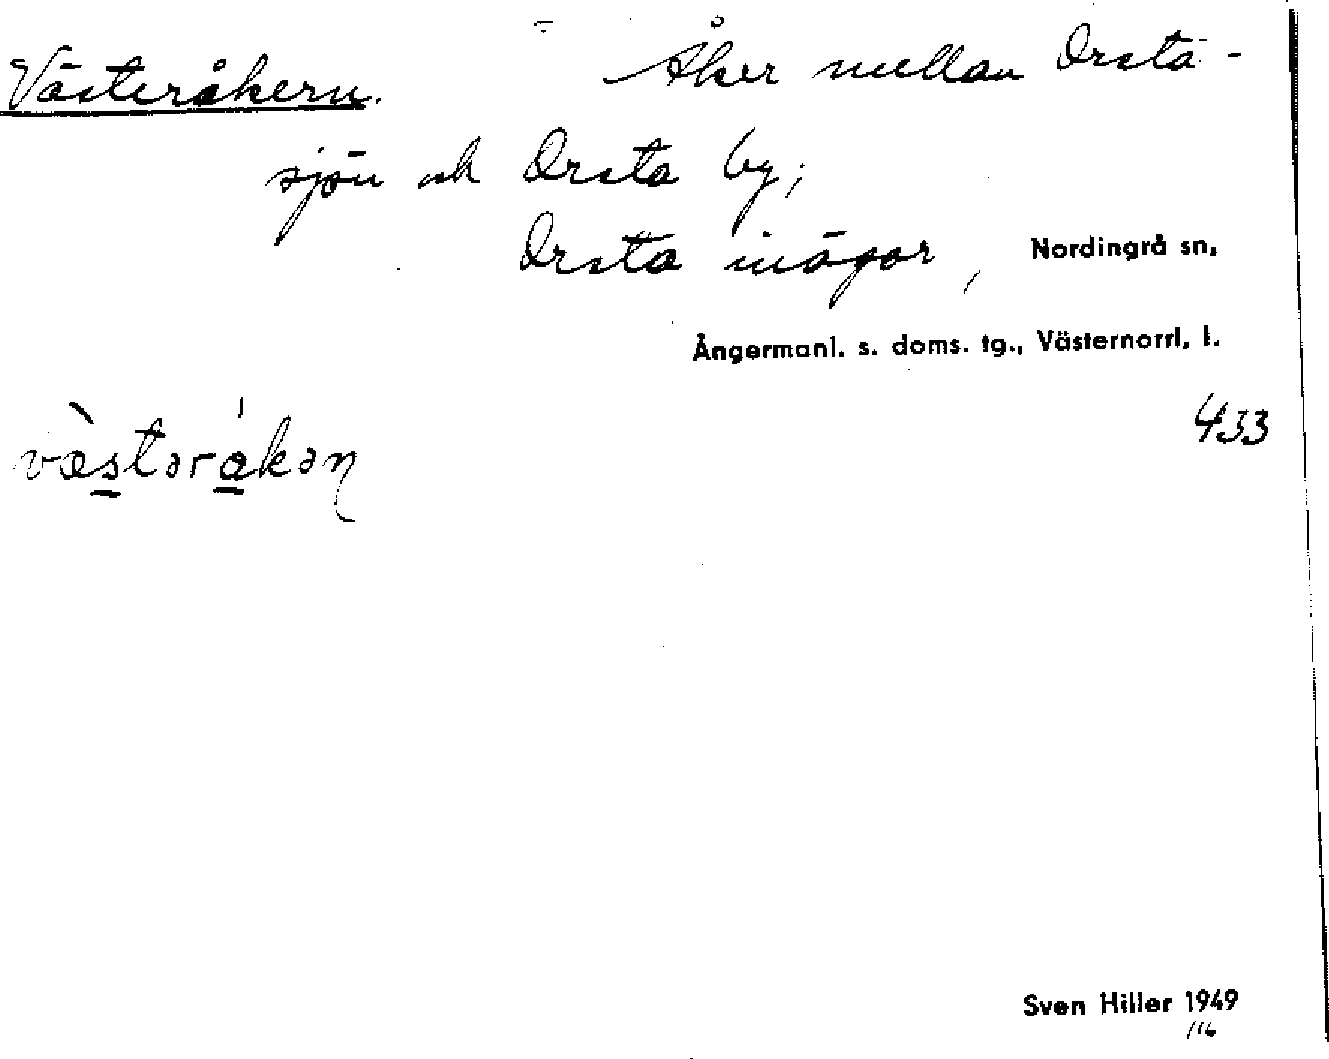 Västeråkern. Åker mellan Orsta-
sjön och Orsta by;
Orsta inägor, Nordingrå sn,
Ångermanl. s. doms. tg., Västernorrl. l.
433
væ̀stəråkəɳ
Sven Hiller 1949